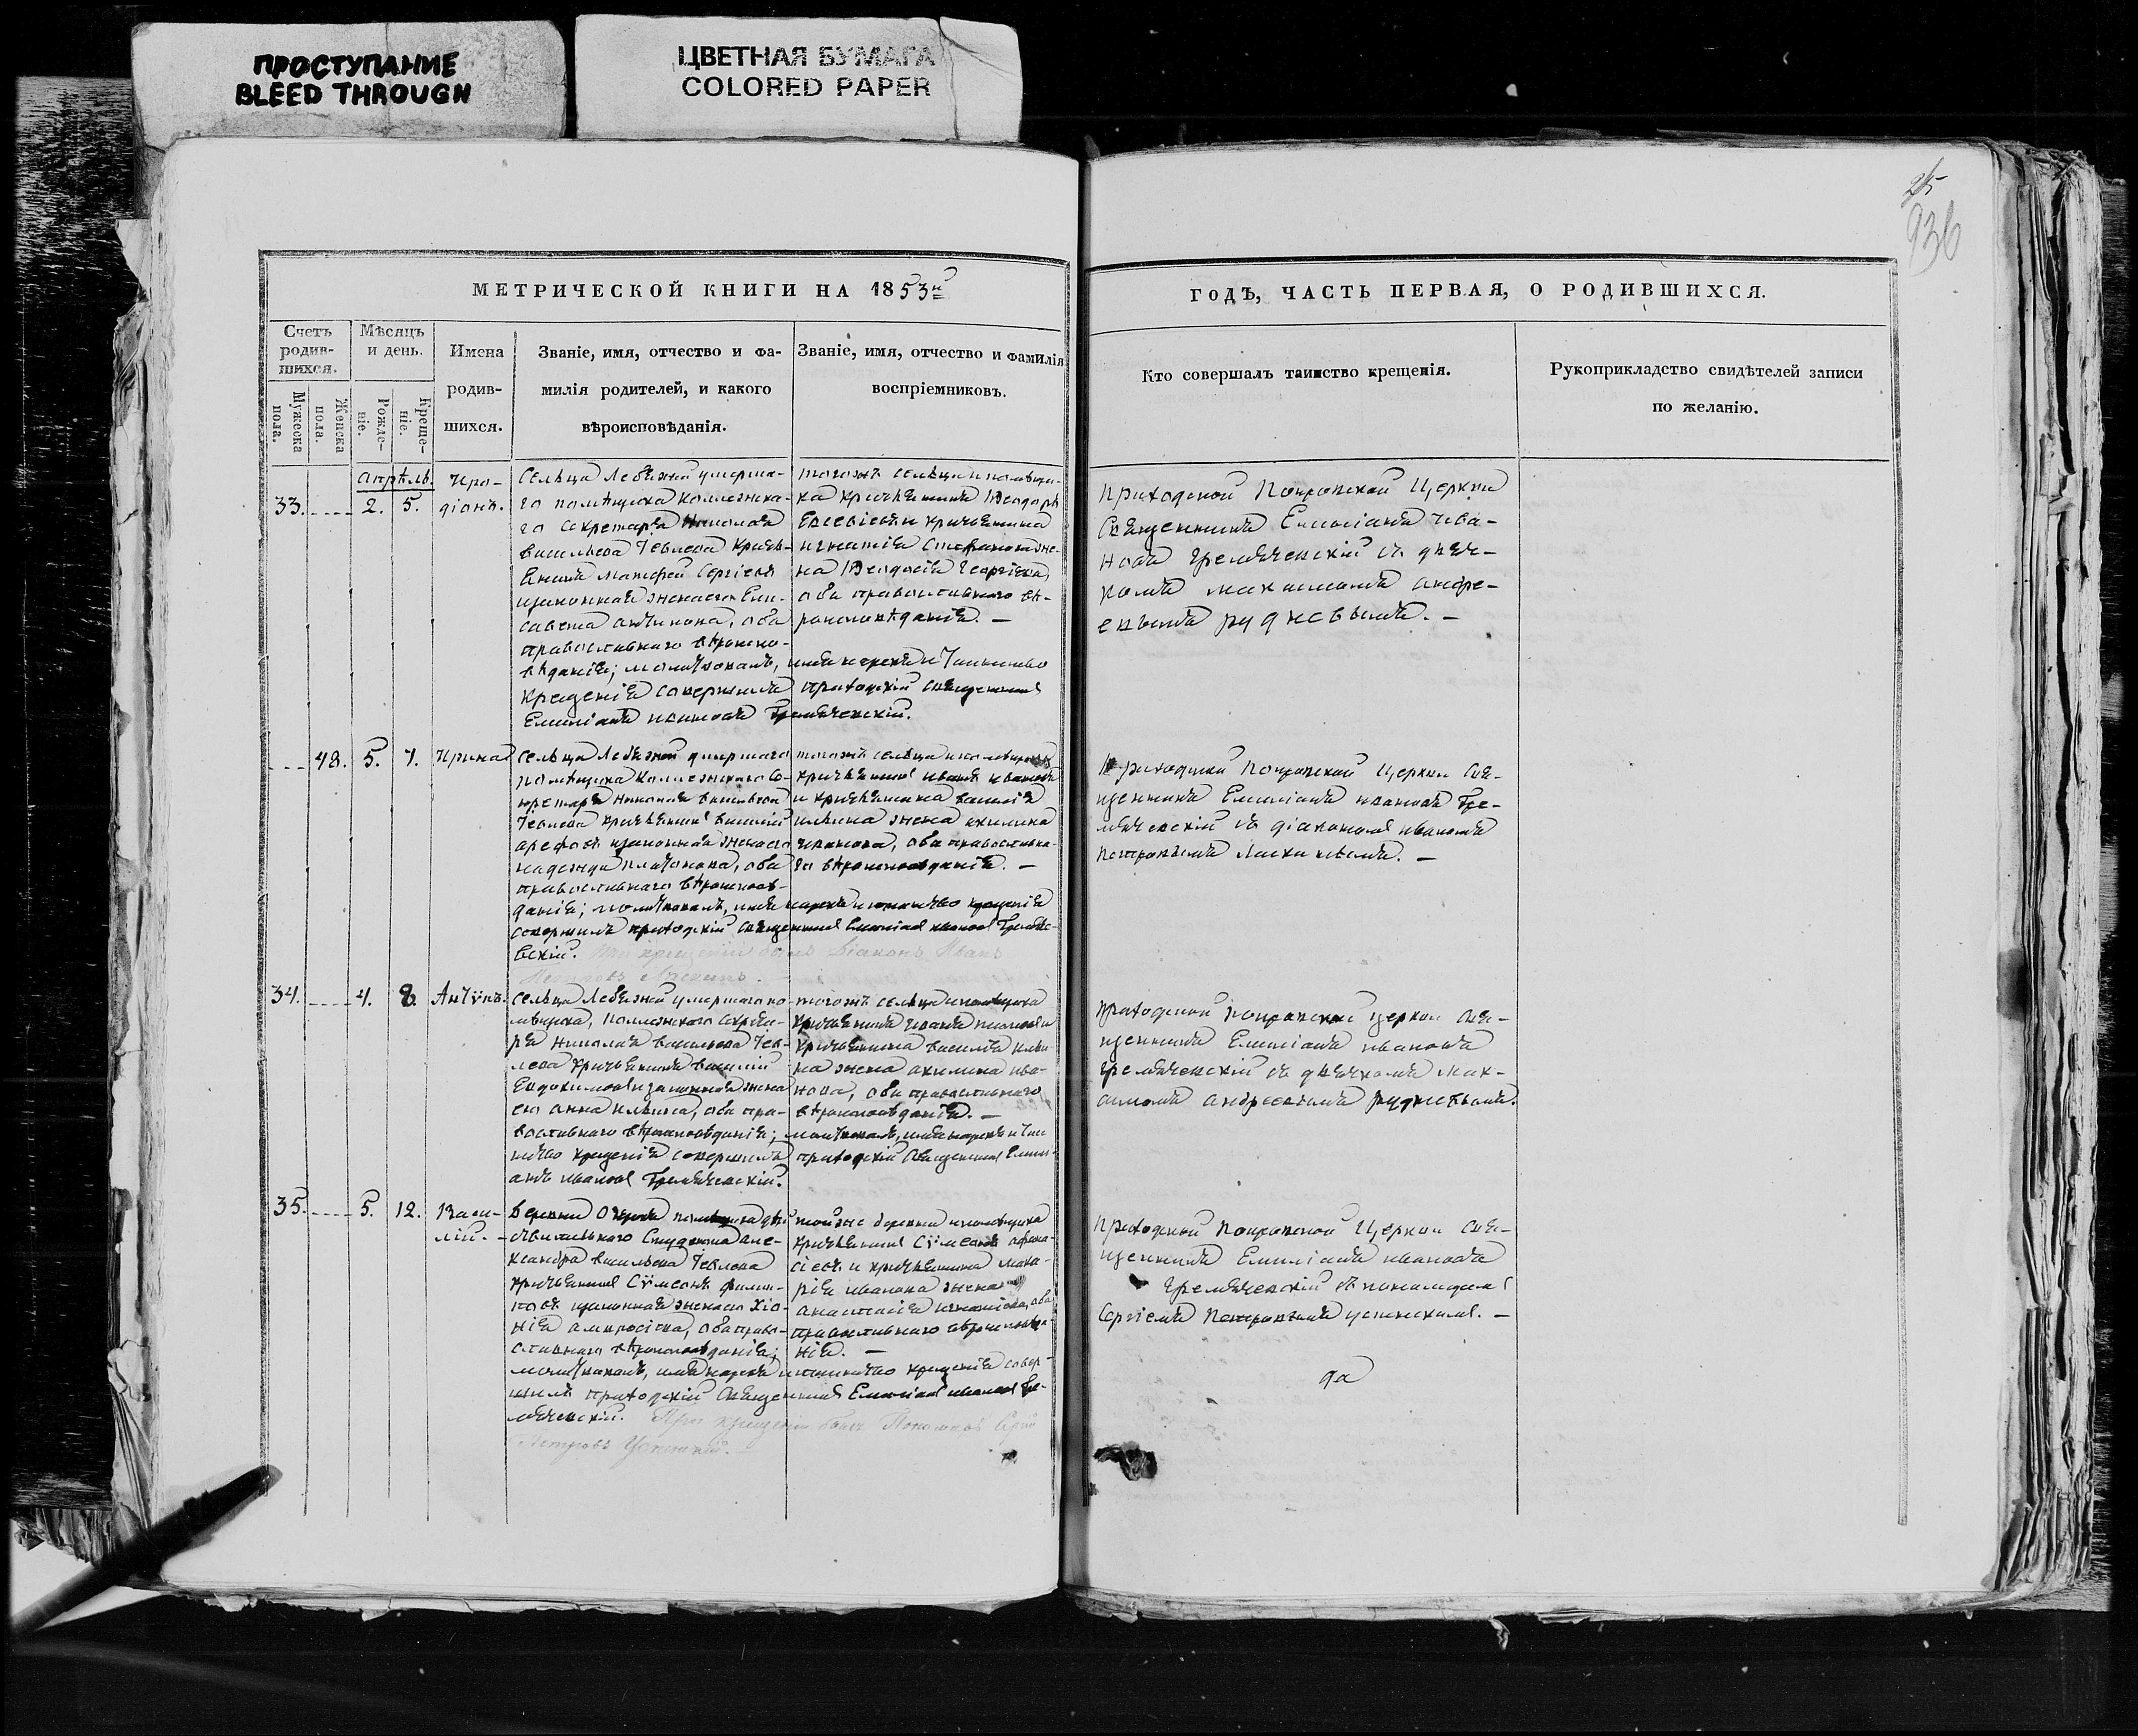 ПРОСТУПАНИЕ
BLEED THROUGH
ЦВЕТНАЯ БУМАГА
COLORED PAPER
25
936
МЕТРИЧЕСКОЙ КНИГИ НА 1853й
Счетъ родив-
шихся.
Мужеска пола.
Женска пола.
Мѣсяцъ и день.
Рожде-
ніе.
Креще-
ніе.
Имена
родив-
шихся.
Званіе, имя, отчество и фа-
милія родителей, и какого
вѣроисповѣданія.
Званіе, имя, отчество и фамилія
воспріемниковъ.
ГОДЪ, ЧАСТЬ ПЕРВАЯ, О РОДИВШИХСЯ.
Кто совершалъ таинство крещенія.
Рукоприкладство свидѣтелей записи
по желанію.
апрѣль
33. 2. 5.
Иро-
діонъ.
Сельца Лебяжей умерша-
го помѣщика коллежска-
го Секретаря Николая
васильева Тевлева крест-
янинъ Матфей Сергіевъ
изаконная женаего Ели-
савета антипова, оба
православнаго вѣроиспо-
вѣданія; молитвовалъ, имя нарекъ и Таинство
крещенія совершилъ приходскій священникъ
Емиліанъ ивановъ Гремяченскій.
тогожъ сельца и помѣщи-
ка крестьянинъ Ѳеодоръ
Евсевіевъ и крестьянина
игнатія Стефанова же-
на Ѳеодосія Георгіева,
оба православнаго вѣ-
роисповѣданія. —
приходской Покровской Церкви
Священникъ Емиліанъ Ива-
новъ Гремяченскій съ дьяч-
комъ максимомъ андре-
евымъ рудневымъ. —
48. 5. 7.
Ирина
сельца Лебяжей умершаго
помѣщика Коллежскаго Се-
кретаря николая васильева
Тевлева крестьянинъ василій
арефьевъ изаконная женаего
надежда платонова, оба
православнаго вѣроисповѣ-
данія; молитвовалъ, имя нарекъ и таинство крещенія
совершилъ приходскій священникъ Емиліанъ ивановъ Гремяче-
вскій. При крещеніи былъ Діаконъ Иванъ
Петровъ
тогожъ сельца и помѣщика
крестьянинъ иванъ ивановъ
и крестьянина василія
ильина жена акилина
иванова, оба православна-
го вѣроисповѣданія. —
Приходской Покровской Церкви Свя-
щенникъ Емиліанъ ивановъ Гре-
мяченскій съ діакономъ иваномъ
петровымъ —
34. 4. 8.
Антүпъ.
сельца Лебяжей умершаго по-
мѣщика, коллежскаго Секрета-
ря николая васильева Тев-
лева крестьянинъ василій
Евдокимовъ изаконная жена
его анна ильина, оба пра-
вославнаго вѣроисповѣданія; молитвовалъ, имя нарекъ и Таи-
нство крещенія совершилъ приходскій священникъ Емилі-
анъ ивановъ Гремяченскій.
тогожъ сельца и помѣщика
крестьянинъ
крестьянина василія ильи-
на жена акилина ива-
нова, оба православнаго
вѣроисповѣданія. —
приходской Покровской церкви Свя-
щенникъ Емиліанъ ивановъ
Гремяченскій съ дьячкомъ мак-
симомъ андреевымъ рудневымъ.
35. 5. 12.
Васи-
лій. -
деревни помѣщика дѣй-
ствительнаго Студента але-
ксандра васильева Тевлева
крестьянинъ Сүмеонъ филип-
повъ изаконная женаего Хіо-
нія амвросіева, оба право-
славнаго вѣроисповѣданія;
молитвовалъ, имя нарекъ и таинство крещенія совер-
шилъ приходскій священникъ Емиліанъ ивановъ Гре-
мяченскій. При крещеніи былъ Пономарь Сергій
Петровъ Успенскій.
тойже деревни и помѣщика
крестьянинъ Сүмеонъ афана-
сіевъ и крестьянина мака-
рія иванова жена
анастасія игнатіева, оба
православнаго вѣроисповѣда-
нія. —
приходской Покровской Церкви Свя-
щенникъ Емиліанъ ивановъ
Гремяченскій съ пономаремъ
Сергіемъ Петровымъ успенскимъ. —
да